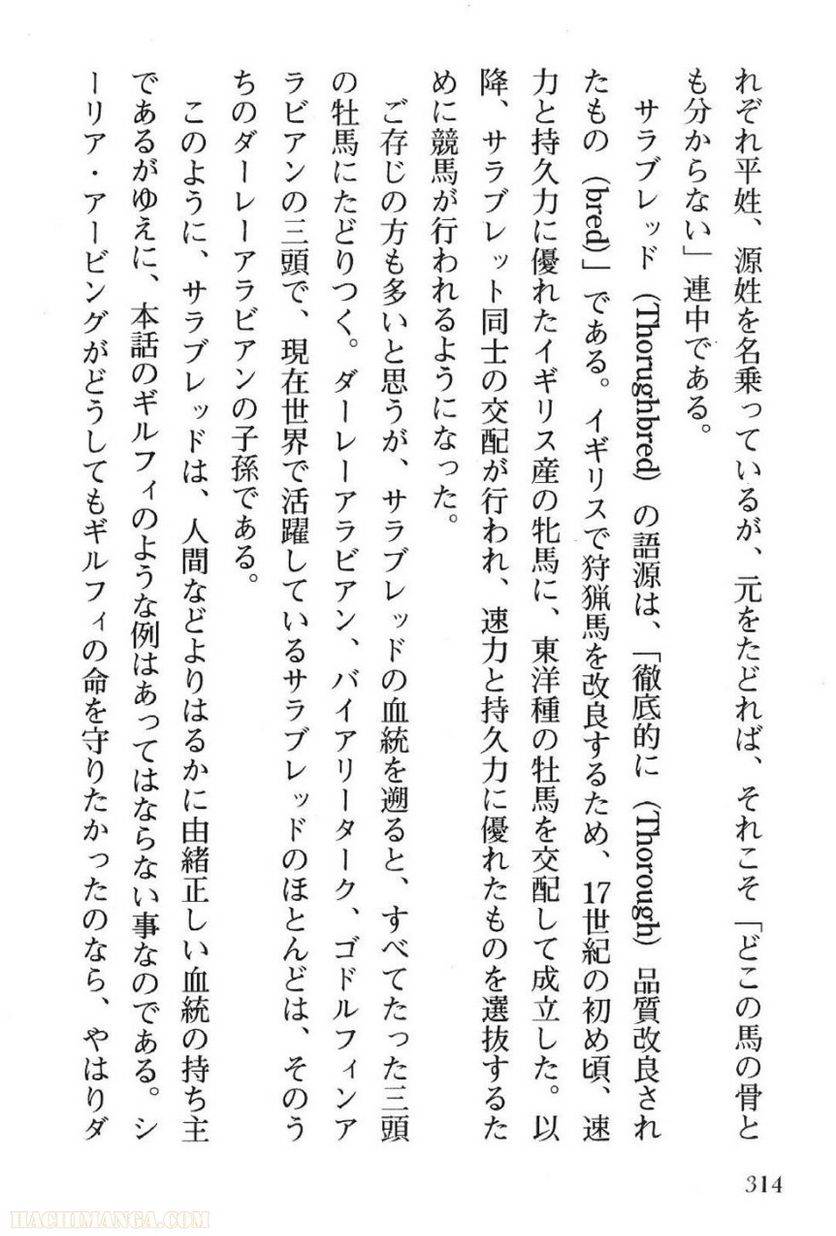 れぞれ平姓、源姓を名乗っているが、元をたどれば、それこそ「どこの馬の骨と
も分からない」連中である。
サラブレッド（Thorughbred）の語源は、「徹底的に（Thorough）品質改良され
たもの（bred）」である。イギリスで狩猟馬を改良するため、17世紀の初め頃、速
力と持久力に優れたイギリス産の牝馬に、東洋種の牡馬を交配して成立した。以
降、サラブレット同士の交配が行われ、速力と持久力に優れたものを選抜するた
めに競馬が行われるようになった。
ご存じの方も多いと思うが、サラブレッドの血統を遡ると、すべてたった三頭
の牡馬にたどりつく。ダーレーアラビアン、バイアリーターク、ゴドルフィンア
ラビアンの三頭で、現在世界で活躍しているサラブレッドのほとんどは、そのう
ちのダーレーアラビアンの子孫である。
このように、サラブレッドは、人間などよりはるかに由緒正しい血統の持ち主
であるがゆえに、本話のギルフィのような例はあってはならない事なのである。シ
ーリア・アービングがどうしてもギルフィの命を守りたかったのなら、やはりダ
314
HACHIMANGA.COM